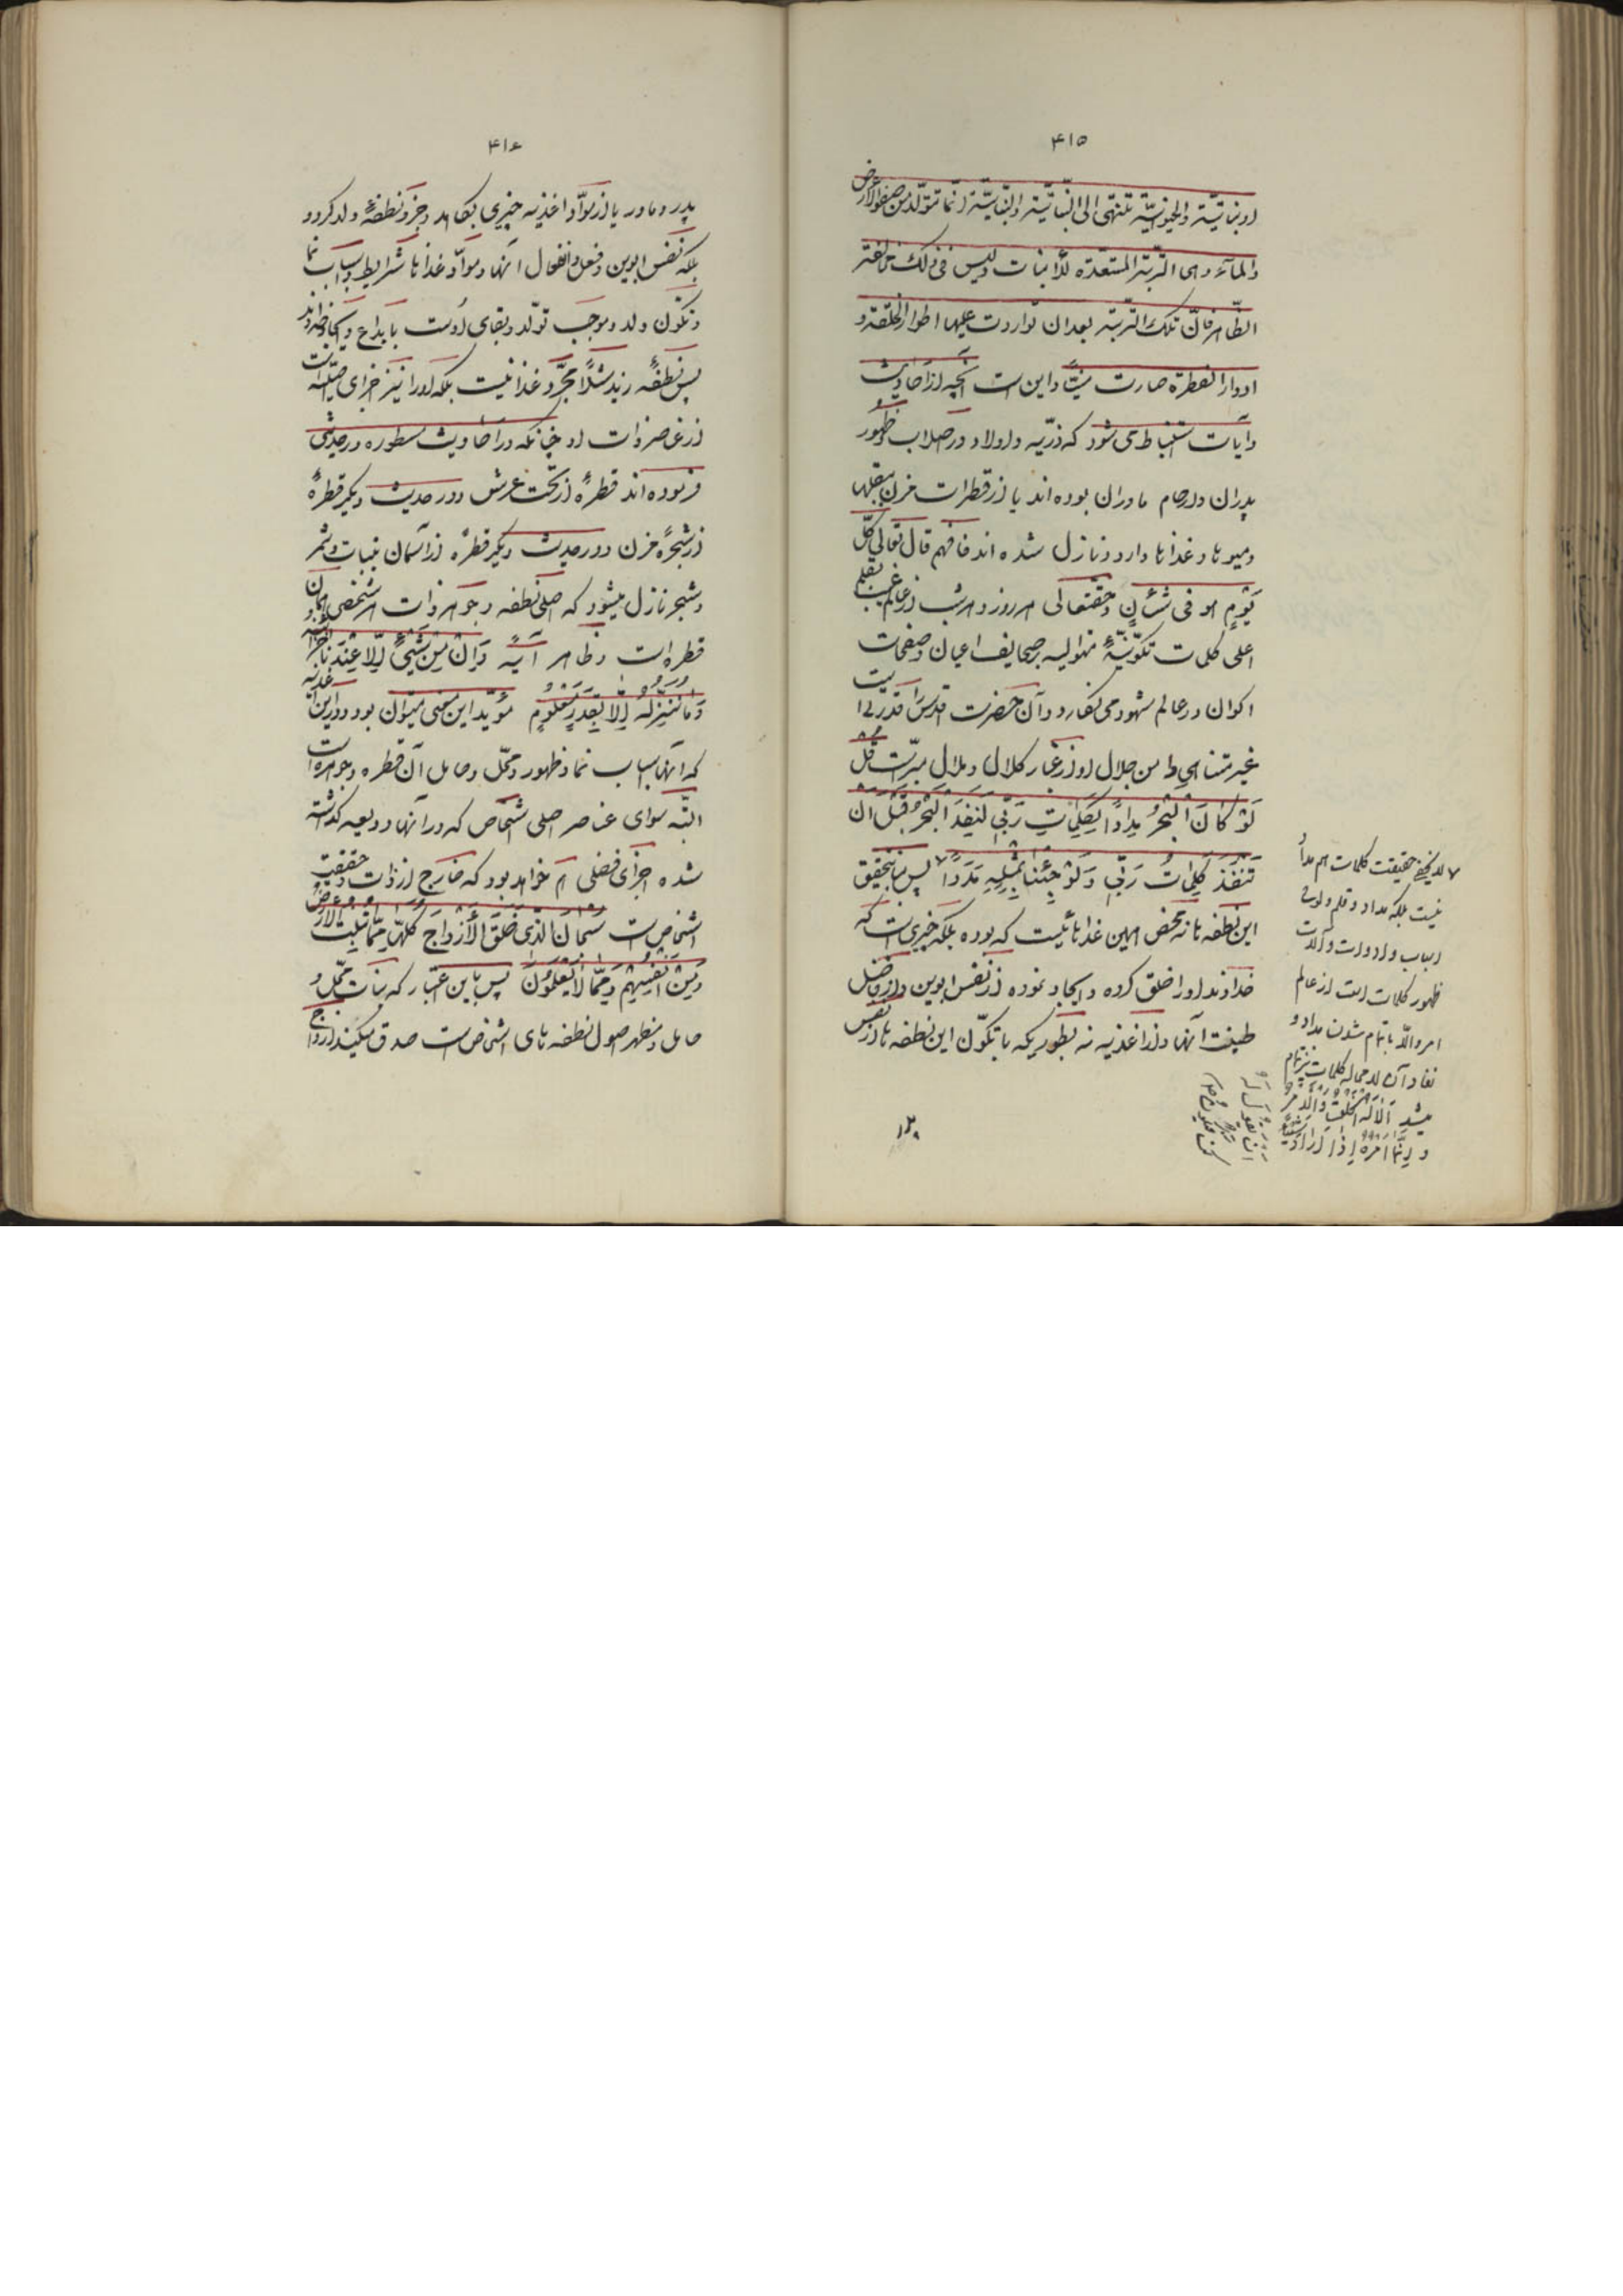 ۴۱۵
او نباتیّة والحیوانیّة تنتهی الی النّباتیّة والنّباتیّة انّما تتولّد من صفو الأرض
والمآء وهی التربة المستعدّة للأنبات ولیس فی ذلک مخالفة
الظّاهر فانّ تلک التّربة بعد ان تواردت علیها اطوار الخلقة و
ادوار الفطرة صارت منیّاً و این است آنچه از احادیث
و آیات استنباط می شود که ذرّیه و اولاد در اصلاب و ظهور
پدران و ارحام مادران بوده اند یا از قطرات مزن ببقلها
و میوها و غذاها وارد و نازل شده اند فافهم قال تعالی کلّ
یَوْمٍ هو فی شَأْنٍ و حقتعالی هر روز و هر شب از عالم غیب بقلم
اعلی کلمات تکوّنیّهٔ برصحایف اعیان و صفحات
اکوان در عالم شهود می نگارد و آن حضرت قدس را قدرت
غیر متناهی و دامن جلال او از غبار کلال و ملال مبرّاست قُلْ
لَوْ کانَ الْبَحْرُ مِداداً لِکَلِماتِ رَبّی لَنَفِدَ الْبَحْرُ قَبْلَ اَنْ
تَنْفَدَ کَلِماتُ رَبّی وَلَوْ جِئْنا بِمِثْلِهِ مَدَداً پس بتحقیق
این نطفه ها نه محض همین غذاهاست که بوده بلکه چیزی است که
خداوند او را خلق کرده و ایجاد نموده از نفس ابوین و از فاضل
طینت آنها و از اغذیه نه بطوریکه با تکوّن این نطفه ها از نفس
حقیقت کلمات هم مداد
نیست بلکه مداد و قلم و لوح
اسباب و ادوات و آلات
ظهور کلمات است از عالم
امر و الّا با تمام شدن مداد و
نفاد آن لا محاله کلمات نیز تمام
میشد اَلا لَهُ الْخَلْقُ وَالْاَمْرُ
و اِنَّما اَمْرُهُ اِذا اَرادَ شَیْئاً
اَنْ یَقُولَ لَهُ
کُنْ فَیَکُونُ
۴۱۶
پدر و مادر یا از موادّ اغذیه چیزی بکاهد و جزو نطفهٔ ولد گردد
بلکه نفس ابوین و فعل و انفعال آنها و موادّ غذاها شرایط و اسباب نما
و تکوّن ولد و موجب تولّد و بقای اوست بابداع و ایجاد خداوند
پس نطفهٔ زید مثلاً مجرّد غذا نیست بلکه او را نیز اجزای اصلیّه است
از عناصر ذات او چنانکه در احادیث مسطوره در حدیثی
فرموده اند قطرهٔ از تحت عرش و در حدیث دیگر قطرهٔ
از شجرهٔ مزن و در حدیث دیگر قطره از آسمان بنبات و ثمر
و شجر نازل میشود که اصل نطفه و جوهر ذات هر شخصی همان
قطره است و ظاهر آیه وَاِنْ مِنْ شَیْئٍ اِلّا عِنْدَنا خَزائِنُهُ
وَما نُنَزِّلُهُ اِلّا بِقَدَرٍ مَعْلُومٍ مؤیّد این معنی میتوان بود و در این اغذیه
که آنها اسباب نما و ظهور و محلّ و حامل آن قطره و جوهره است
البتّه سوای عناصر اصلی اشخاص که در آنها ودیعه گذاشته
شده اجزای فضلی هم خواهد بود که خارج از ذات و حقیقت
اشخاص است سُبْحانَ الَّذی خَلَقَ الْأَزْواجَ کُلَّها مِمّا تُنْبِتُ الْأَرْضُ
وَمِنْ اَنْفُسِهِمْ وَمِمّا لا یَعْلَمُونَ پس باین اعتبار که نبات محلّ و
حامل و مظهر اصول نطفه های اشخاص است صدق میکند ازواج